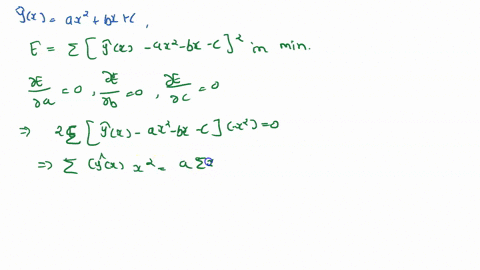 ŷ(x) = ax² + bx + c,
E = Σ [ŷ(x) - ax² - bx - c]² in min.
∂E/∂a = 0, ∂E/∂b = 0, ∂E/∂c = 0
⇒ 2Σ [ŷ(x) - ax² - bx - c] (-x²) = 0
⇒ Σ ŷ(x) x² = a Σ